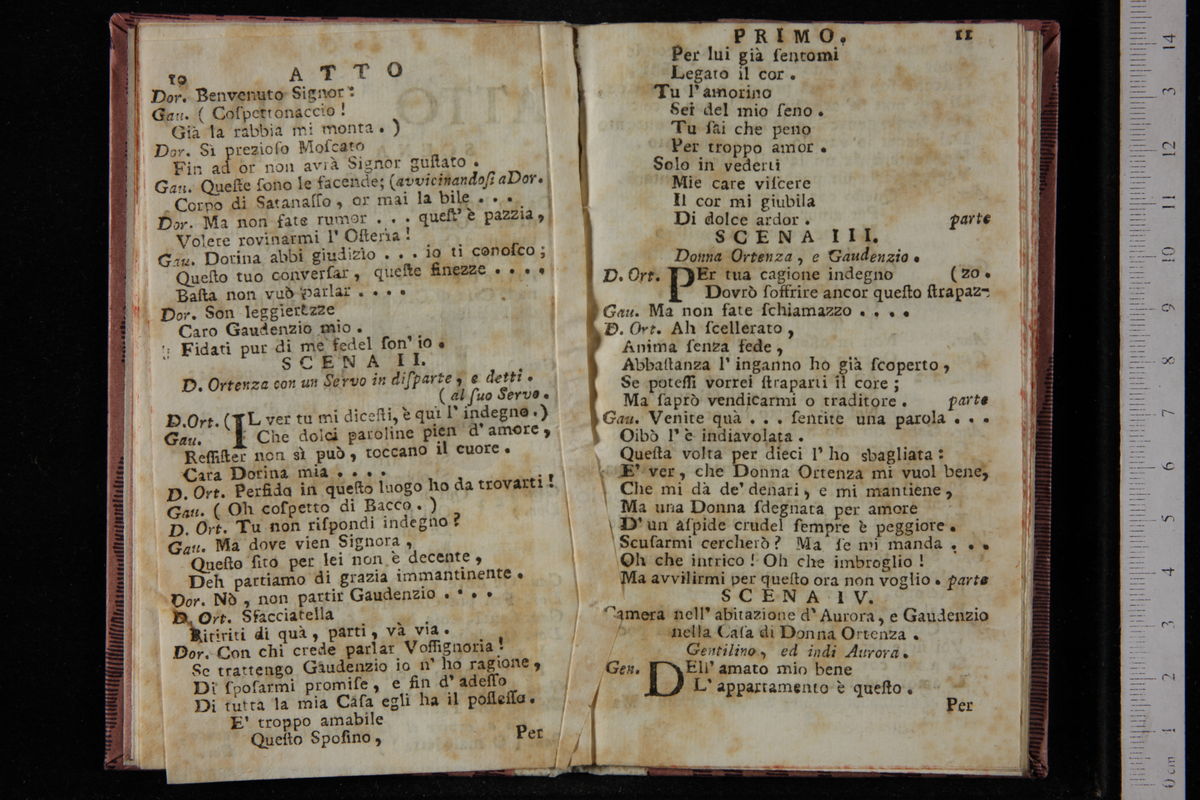 10 ATTO
Dor. Benvenuto Signor:
Gau. ( Coſpettonaccio!
Già la rabbia mi monta. )
Dor. Sì prezioſo Moſcato
Fin ad or non avrà Signor guſtato.
Gau. Queſte ſono le facende; (avvicinandoſi a Dor.
Corpo di Satanaſſo, or mai la bile . . .
Dor. Ma non fate rumor . . . queſt' è pazzia,
Volere rovinarmi l' Oſteria!
Gau. Dorina abbi giudizio . . . io ti conoſco;
Queſto tuo converſar, queſte finezze . . . .
Baſta non vuò parlar . . . .
Dor. Son leggierezze
Caro Gaudenzio mio.
Fidati pur di me fedel ſon' io.
SCENA II.
D. Ortenza con un Servo in diſparte, e detti.
( al ſuo Servo.
D.Ort. (IL ver tu mi diceſti, è quì l' indegno.)
Gau. Che dolci paroline pien d' amore,
Reſſiſter non sì può, toccano il cuore.
Cara Dorina mia . . . .
D. Ort. Perfido in queſto luogo ho da trovarti!
Gau. ( Oh coſpetto di Bacco. )
D. Ort. Tu non riſpondi indegno?
Gau. Ma dove vien Signora,
Queſto ſito per lei non è decente,
Deh partiamo di grazia immantinente.
Dor. Nò, non partir Gaudenzio . . . .
D. Ort. Sfacciatella
Ritiriti di quà, parti, và via.
Dor. Con chi crede parlar Voſſignoria!
Se trattengo Gaudenzio io n' ho ragione,
Di ſpoſarmi promiſe, e fin d' adeſſo
Di tutta la mia Caſa egli ha il poſſeſſo.
E' troppo amabile
Queſto Spoſino,
Per
PRIMO. 11
Per lui già ſentomi
Legato il cor.
Tu l' amorino
Sei del mio ſeno.
Tu ſai che peno
Per troppo amor.
Solo in vederti
Mie care viſcere
Il cor mi giubila
Di dolce ardor. parte
SCENA III.
Donna Ortenza, e Gaudenzio.
D. Ort. PEr tua cagione indegno (zo.
Dovrò ſoffrire ancor queſto ſtrapaz-
Gau. Ma non fate ſchiamazzo . . . .
D. Ort. Ah ſcellerato,
Anima ſenza fede,
Abbaſtanza l' inganno ho già ſcoperto,
Se poteſſi vorrei ſtraparti il core;
Ma ſaprò vendicarmi o traditore. parte
Gau. Venite quà . . . ſentite una parola . . .
Oibò l' è indiavolata.
Queſta volta per dieci l' ho sbagliata:
E' ver, che Donna Ortenza mi vuol bene,
Che mi dà de' denari, e mi mantiene,
Ma una Donna ſdegnata per amore
D' un aſpide crudel ſempre è peggiore.
Scuſarmi cercherò? Ma ſe mi manda . . .
Oh che intrico! Oh che imbroglio!
Ma avvilirmi per queſto ora non voglio. parte
SCENA IV.
Camera nell' abitazione d' Aurora, e Gaudenzio
nella Caſa di Donna Ortenza.
Gentilino, ed indi Aurora.
Gen. DEll' amato mio bene
L' appartamento è queſto.
Per
14
3
12
11
10
9
8
7
6
5
4
3
2
1
0 cm